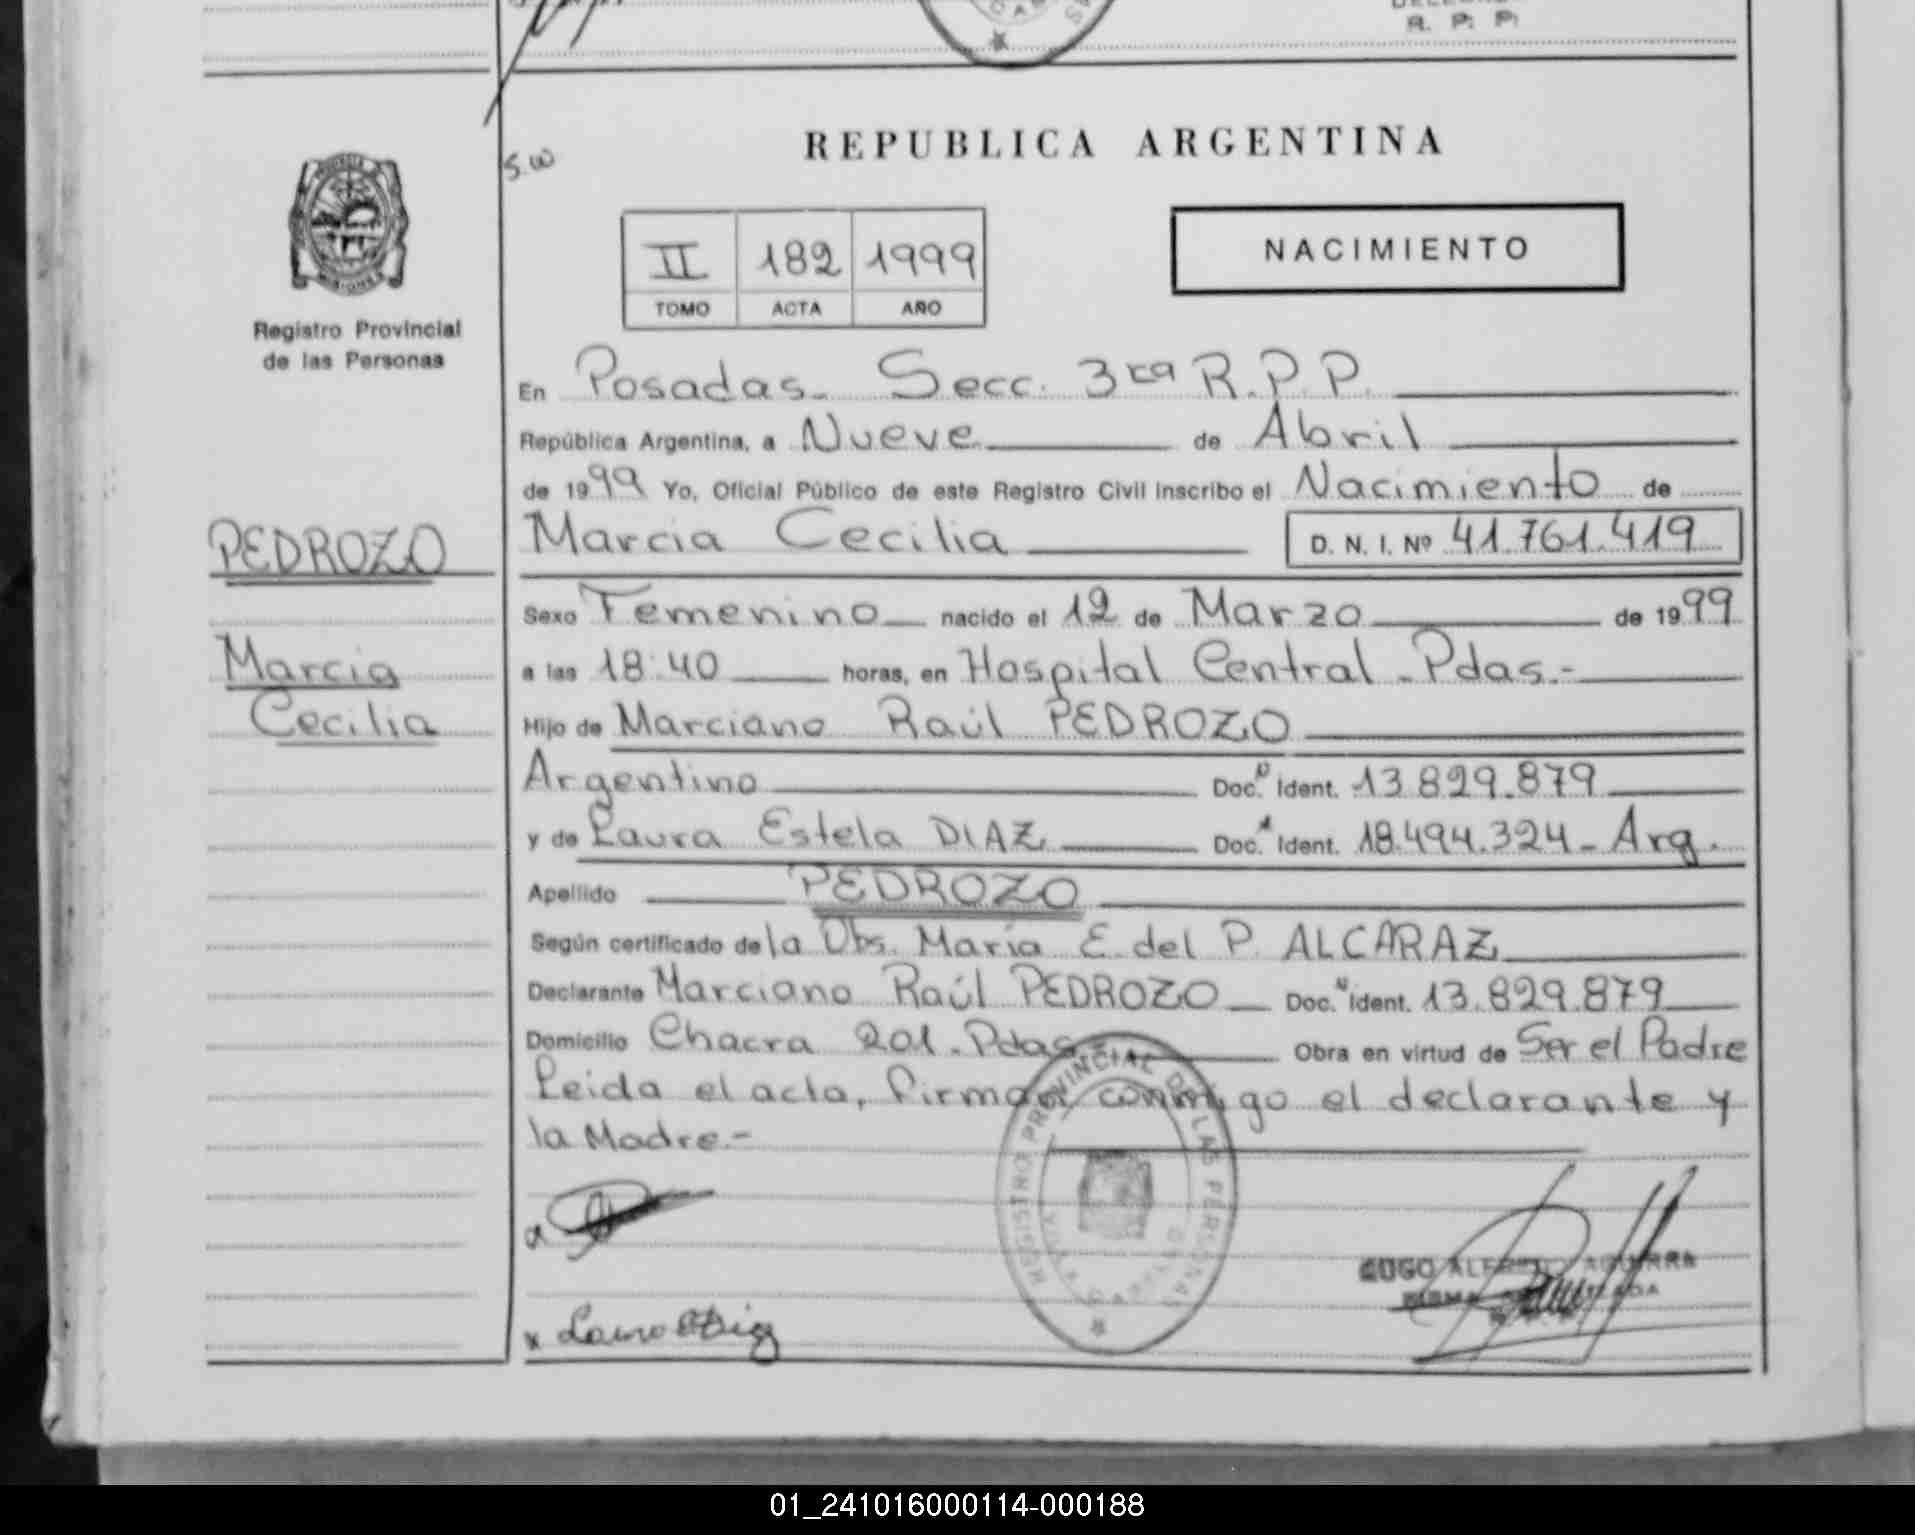 R. P. P.
REPUBLICA ARGENTINA
S.W
II 182 1999
TOMO ACTA AÑO
NACIMIENTO
Registro Provincial
de las Personas
En Posadas. Secc. 3ra R.P.P.
República Argentina, a Nueve de Abril
de 1999 Yo, Oficial Público de este Registro Civil inscribo el Nacimiento de
PEDROZO
Marcia Cecilia D. N. I. Nº 41.761.419
Sexo Femenino nacido el 12 de Marzo de 1999
Marcia
a las 18:40 horas, en Hospital Central - Pdas.-
Cecilia
Hijo de Marciano Raúl PEDROZO
Argentino Doc. Ident. 13.829.879
y de Laura Estela DIAZ Doc. Ident. 18.494.324 - Arg.
Apellido PEDROZO
Según certificado de la Obs. María E. del P. ALCARAZ
Declarante Marciano Raúl PEDROZO Doc. Ident. 13.829.879
Domicilio Chacra 201 - Pdas Obra en virtud de Ser el Padre
Leida el acta, firman conmigo el declarante y
la Madre.-
REGISTRO PROVINCIAL DE LAS PERSONAS
01_241016000114-000188